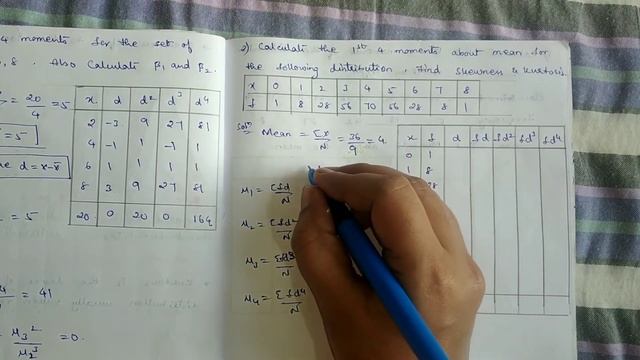 4 moments for the set of
, 8 . Also Calculate β₁ and β₂.
= 20/4 = 5
= 5
d = x-x̄
x d d² d³ d⁴
2 -3 9 -27 81
4 -1 1 -1 1
6 1 1 1 1
8 3 9 27 81
20 0 20 0 164
= 5
= 41
μ₃²/μ₂³ = 0.
2) Calculate the 1st 4 moments about mean for
the following distribution. Find skewness & kurtosis.
x 0 1 2 3 4 5 6 7 8
f 1 8 28 56 70 56 28 8 1
Sol: Mean = Σx/N = 36/9 = 4
μ₁ = Σfd/N
μ₂ = Σfd²/N
μ₃ = Σfd³/N
μ₄ = Σfd⁴/N
x f d fd fd² fd³ fd⁴
0 1
1 8
28